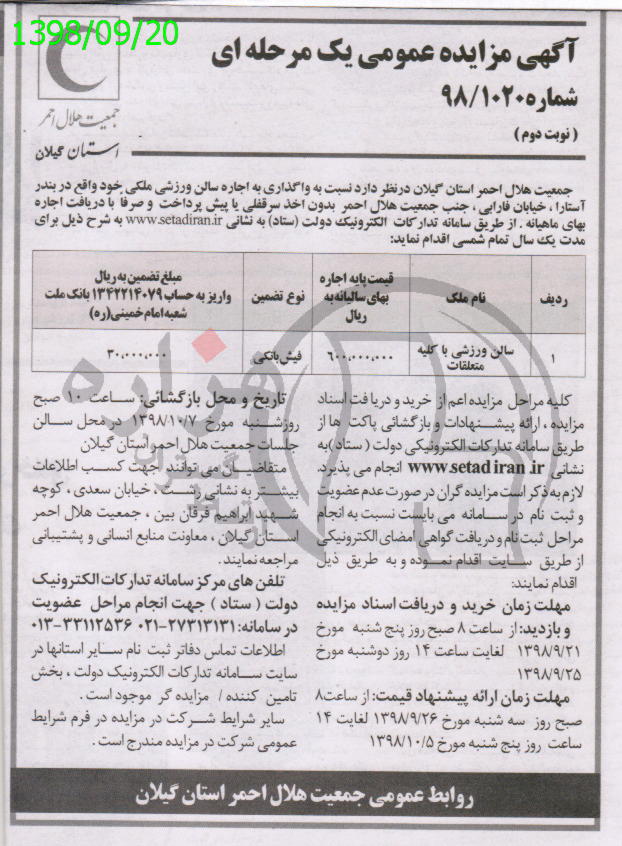 1398/09/20
آگهی مزایده عمومی یک مرحله ای
شماره ۹۸/۱۰۲۰
( نوبت دوم )
جمعیت هلال احمر
استان گیلان
جمعیت هلال احمر استان گیلان درنظر دارد نسبت به واگذاری به اجاره سالن ورزشی ملکی خود واقع در بندر
آستارا ، خیابان فارابی ، جنب جمعیت هلال احمر بدون اخذ سرقفلی یا پیش پرداخت و صرفا با دریافت اجاره
بهای ماهیانه . از طریق سامانه تدارکات الکترونیک دولت (ستاد) به نشانی www.setadiran.ir به شرح ذیل برای
مدت یک سال تمام شمسی اقدام نماید:
ردیف
نام ملک
قیمت پایه اجاره
بهای سالیانه به
ریال
نوع تضمین
مبلغ تضمین به ریال
واریز به حساب ۱۳۴۲۲۱۴۰۷۹ بانک ملت
شعبه امام خمینی(ره)
۱
سالن ورزشی با کلیه
متعلقات
۶۰۰,۰۰۰,۰۰۰
فیش بانکی
۳۰,۰۰۰,۰۰۰
کلیه مراحل مزایده اعم از خرید و دریافت اسناد
مزایده ، ارائه پیشنهادات و بازگشائی پاکت ها از
طریق سامانه تدارکات الکترونیکی دولت ( ستاد)به
نشانی www.setadiran.ir انجام می پذیرد.
لازم به ذکر است مزایده گران در صورت عدم عضویت
و ثبت نام در سامانه می بایست نسبت به انجام
مراحل ثبت نام و دریافت گواهی امضای الکترونیکی
از طریق سایت اقدام نموده و به طریق ذیل
اقدام نمایند:
مهلت زمان خرید و دریافت اسناد مزایده
و بازدید: از ساعت ۸ صبح روز پنج شنبه مورخ
۱۳۹۸/۹/۲۱ لغایت ساعت ۱۴ روز دوشنبه مورخ
۱۳۹۸/۹/۲۵
مهلت زمان ارائه پیشنهاد قیمت: از ساعت۸
صبح روز سه شنبه مورخ ۱۳۹۸/۹/۲۶ لغایت ۱۴
ساعت روز پنج شنبه مورخ ۱۳۹۸/۱۰/۵
تاریخ و محل بازگشائی: ساعت ۱۰ صبح
روزشنبه مورخ ۱۳۹۸/۱۰/۷ در محل سالن
جلسات جمعیت هلال احمر استان گیلان
متقاضیان می توانند جهت کسب اطلاعات
بیشتر به نشانی رشت ، خیابان سعدی ، کوچه
شهید ابراهیم فرقان بین ، جمعیت هلال احمر
استان گیلان ، معاونت منابع انسانی و پشتیبانی
مراجعه نمایند.
تلفن های مرکز سامانه تدارکات الکترونیک
دولت ( ستاد ) جهت انجام مراحل عضویت
در سامانه: ۲۷۳۱۳۱۳۱-۰۲۱ ۳۳۱۱۲۵۳۶-۰۱۳
اطلاعات تماس دفاتر ثبت نام سایر استانها در
سایت سامانه تدارکات الکترونیک دولت ، بخش
تامین کننده / مزایده گر موجود است .
سایر شرایط شرکت در مزایده در فرم شرایط
عمومی شرکت در مزایده مندرج است .
روابط عمومی جمعیت هلال احمر استان گیلان
هزاره